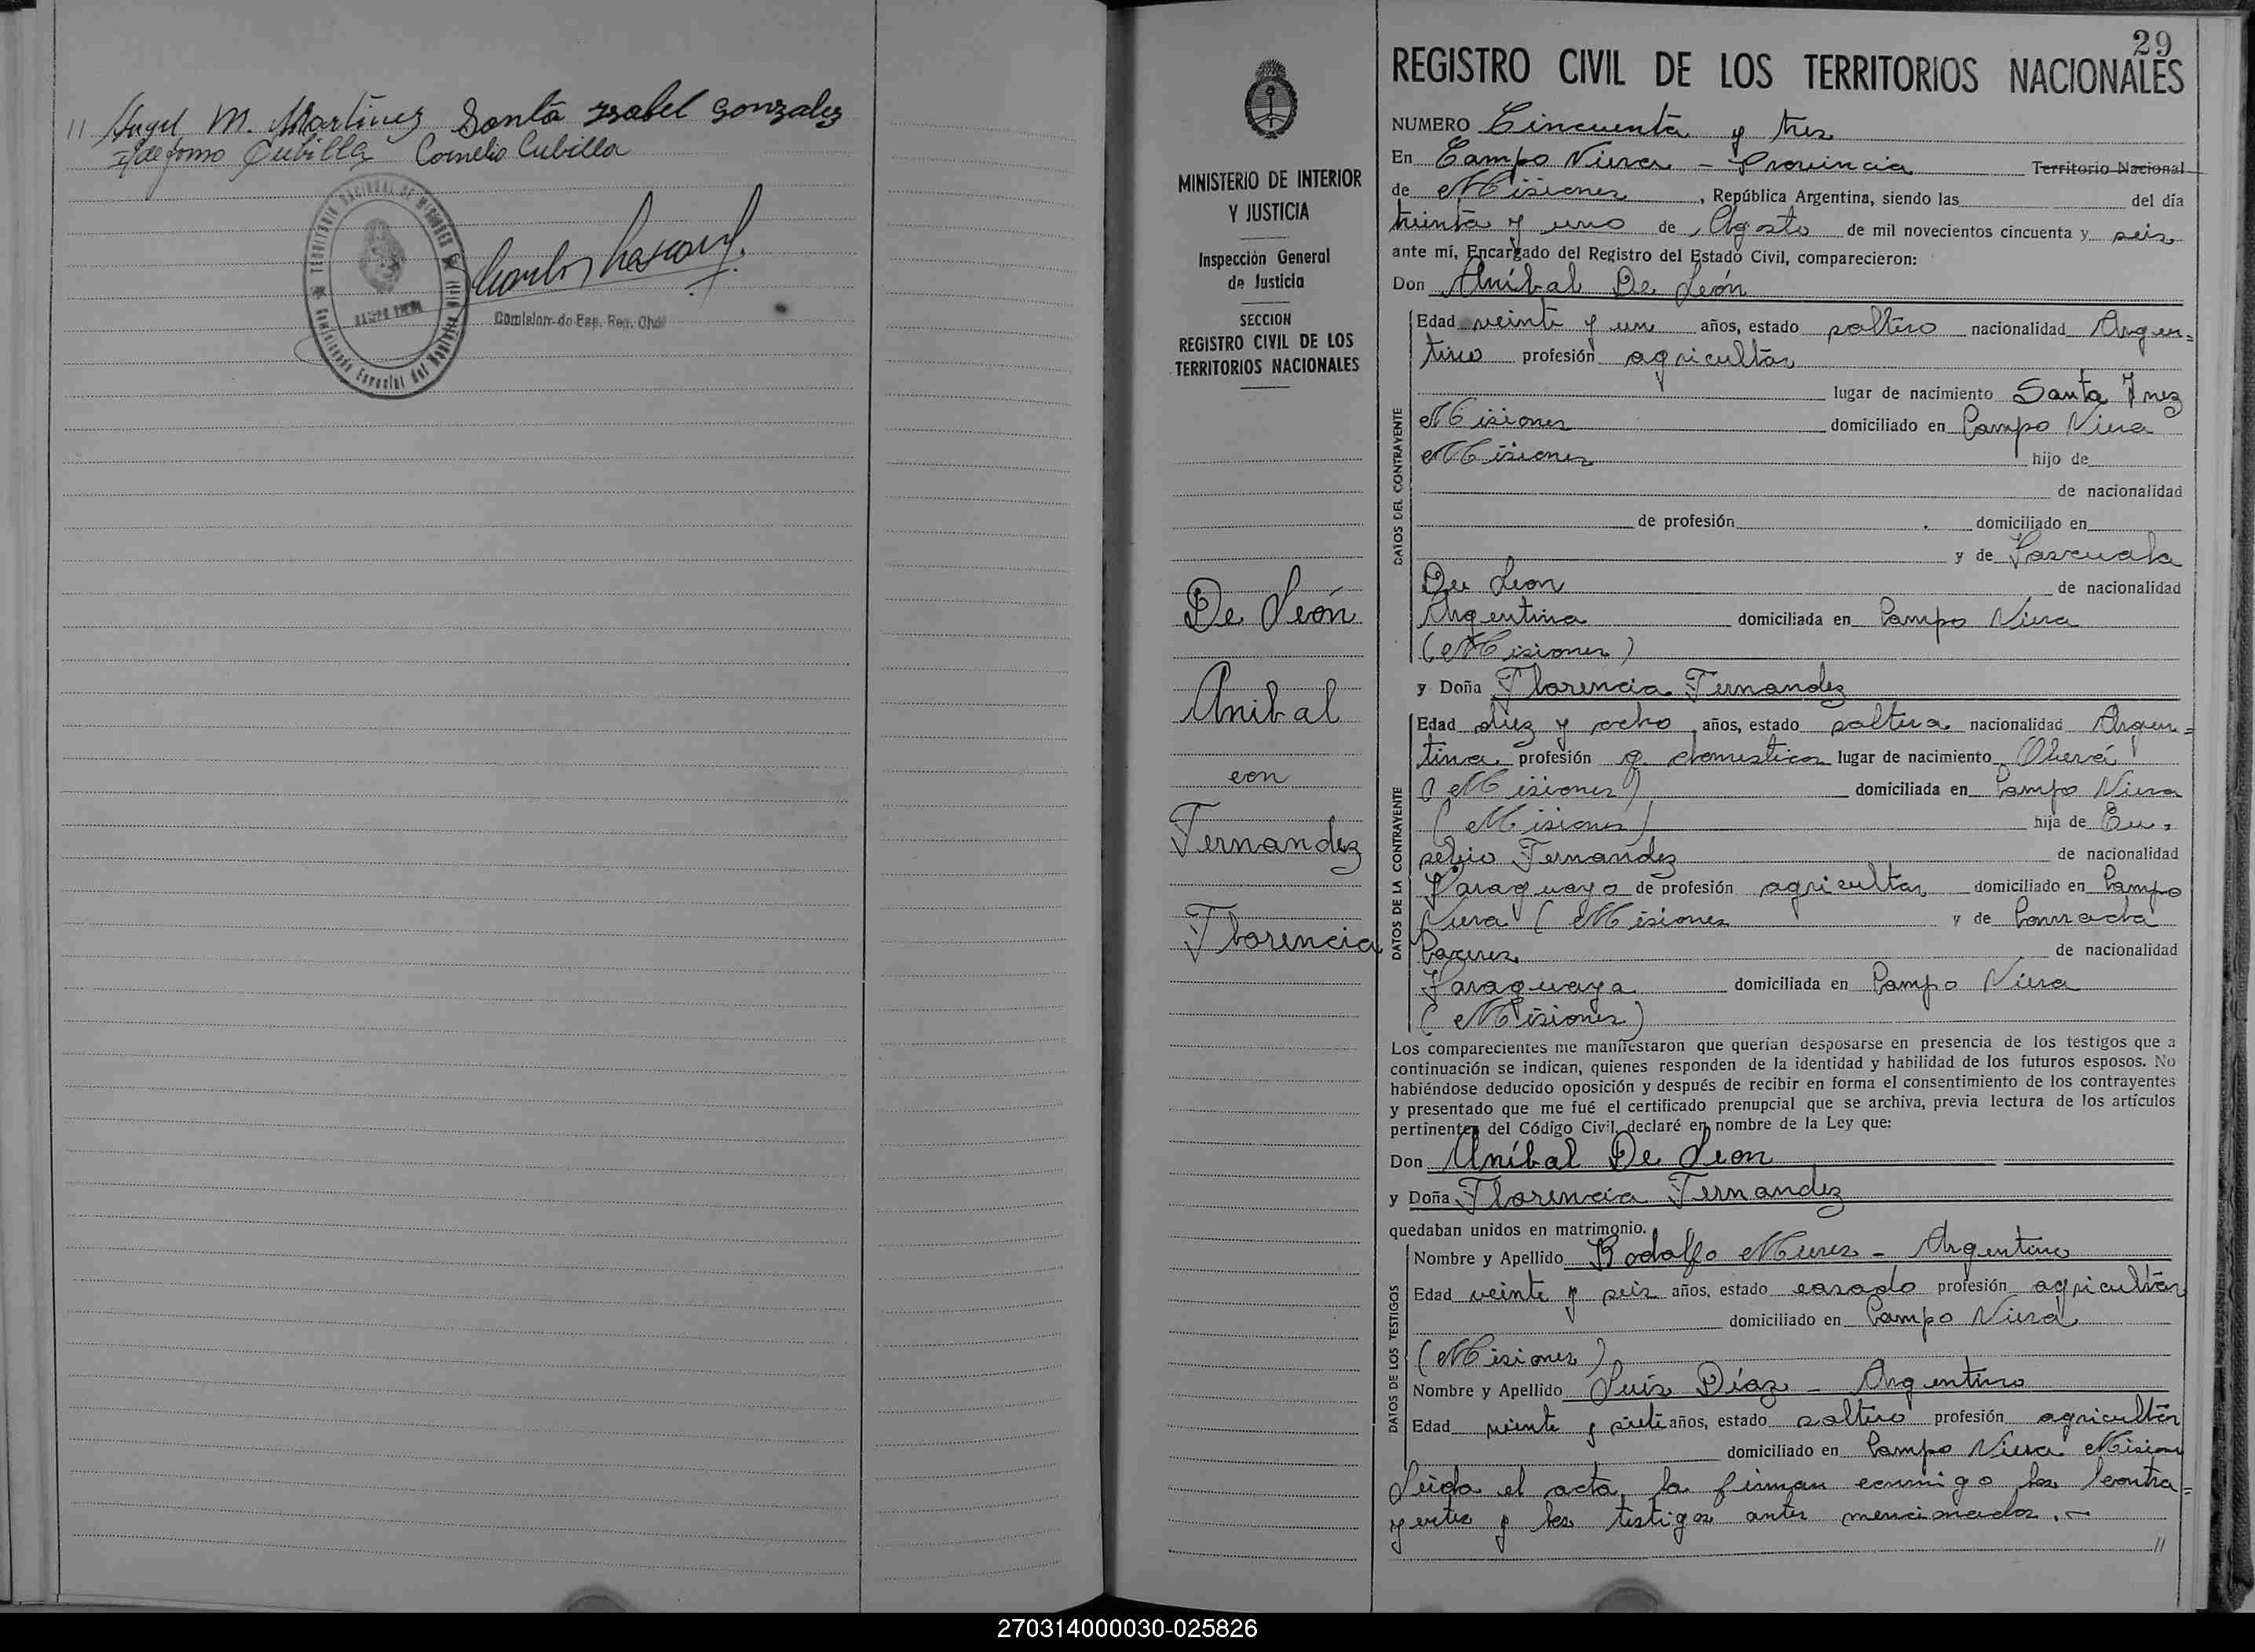 11 Angel M. Martinez Santa Ysabel Gonzalez
Ildefonso Cubilla Cornelio Cubilla
Comision de Esp. Reg. Civil
MINISTERIO DE INTERIOR
Y JUSTICIA
Inspección General
de Justicia
SECCION
REGISTRO CIVIL DE LOS
TERRITORIOS NACIONALES
De León
Anibal
con
Fernandez
Florencia
29
REGISTRO CIVIL DE LOS TERRITORIOS NACIONALES
NUMERO Cincuenta y tres
En Campo Viera - Provincia Territorio Nacional
de Misiones, República Argentina, siendo las del día
treinta y uno de Agosto de mil novecientos cincuenta y seis
ante mí, Encargado del Registro del Estado Civil, comparecieron:
Don Aníbal De León
DATOS DEL CONTRAYENTE
Edad veinte y un años, estado soltero nacionalidad Argen=
tino profesión agricultor
lugar de nacimiento Santa Inez
Misiones domiciliado en Campo Viera
Misiones hijo de
de nacionalidad
de profesión domiciliado en
y de Pascuala
De Leon de nacionalidad
Argentina domiciliada en Campo Viera
(Misiones)
y Doña Florencia Fernandez
DATOS DE LA CONTRAYENTE
Edad diez y ocho años, estado soltera nacionalidad Argen=
tina profesión q. domesticos lugar de nacimiento Oberá
(Misiones) domiciliada en Campo Viera
(Misiones) hija de Eu=
sebio Fernandez de nacionalidad
Paraguayo de profesión agricultor domiciliado en Campo
Viera (Misiones y de
de nacionalidad
Paraguaya domiciliada en Campo Viera
(Misiones)
Los comparecientes me manifestaron que querían desposarse en presencia de los testigos que a
continuación se indican, quienes responden de la identidad y habilidad de los futuros esposos. No
habiéndose deducido oposición y después de recibir en forma el consentimiento de los contrayentes
y presentado que me fué el certificado prenupcial que se archiva, previa lectura de los artículos
pertinentes del Código Civil, declaré en nombre de la Ley que:
Don Aníbal De Leon
y Doña Florencia Fernandez
quedaban unidos en matrimonio.
DATOS DE LOS TESTIGOS
Nombre y Apellido Rodolfo - Argentino
Edad veinte y seis años, estado casado profesión agricultor
domiciliado en Campo Viera
(Misiones)
Nombre y Apellido Luis Díaz - Argentino
Edad veinte y siete años, estado soltero profesión agricultor
domiciliado en Campo Viera Mision
Leida el acta, la firman conmigo los contra=
yentes y los testigos antes mencionados.-
11
270314000030-025826